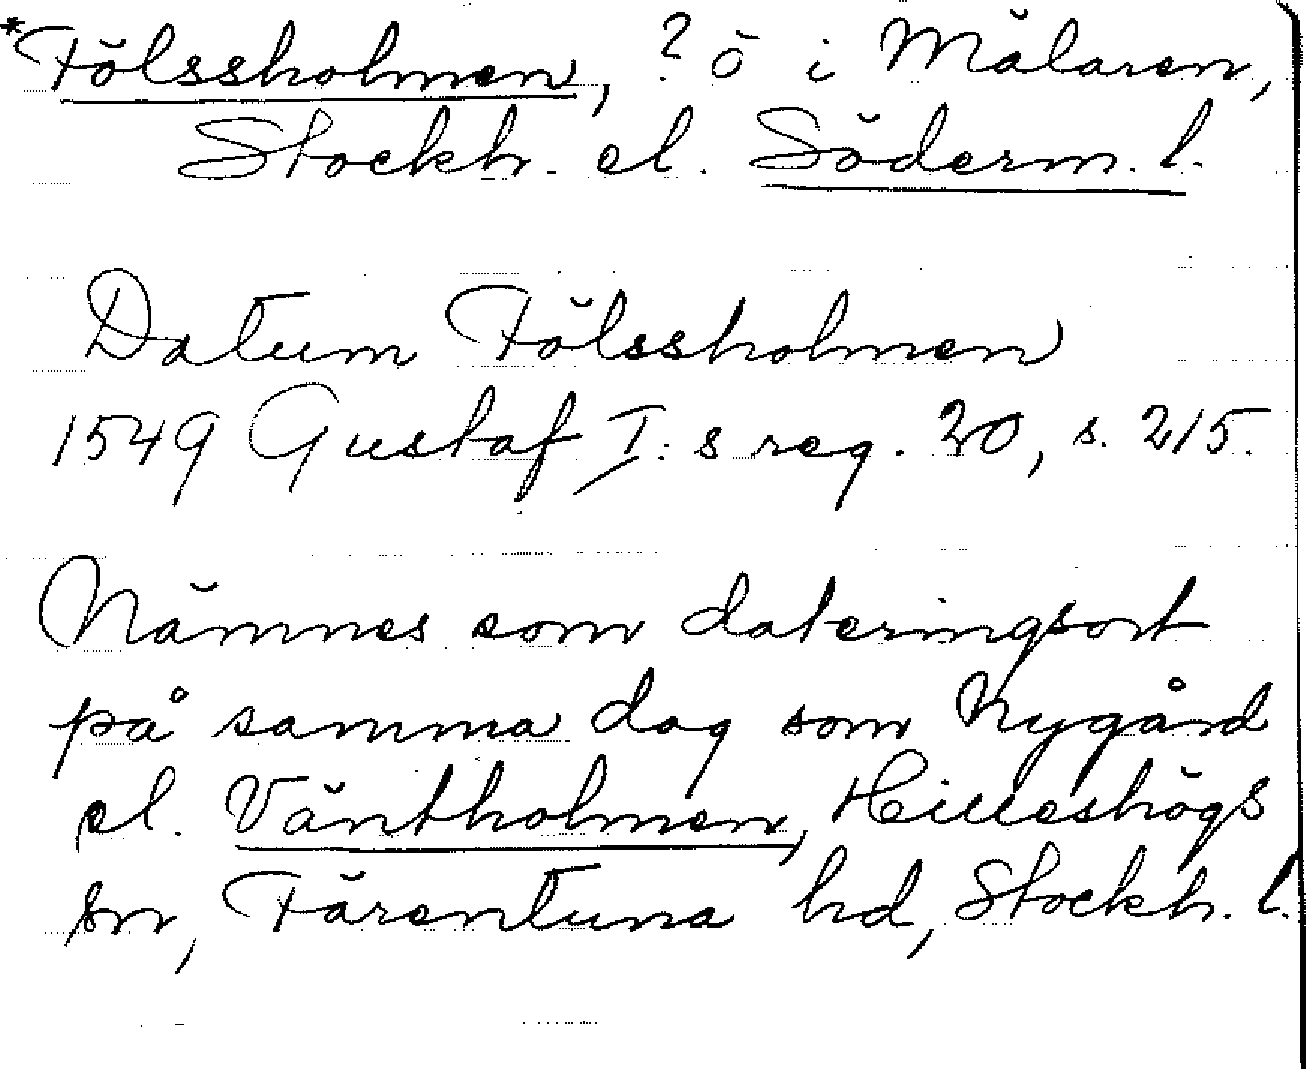 *Fölssholmen, ? ö i Mälaren,
Stockh. el. Söderm. l.
Datum Fölssholmen
1549 Gustaf I:s reg. 20, s. 215.
Nämnes som dateringsort
på samma dag som Nygård
el. Väntholmen, Hilleshögs
sn, Färentuna hd, Stockh. l.